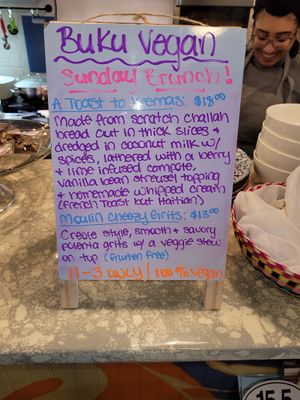 Buku Vegan
Sunday Brunch!
A Toast to Vremas: $13.00
Made from scratch challah
bread cut in thick slices &
dredged in coconut milk w/
spices, lathered with a berry
& lime infused compote,
vanilla bean streusel topping
& homemade whipped cream
(French Toast but Haitian)
Moulin Cheezy Grits: $13.00
Creole style, smooth & savory
polenta grits w/ a veggie stew
on top (Gluten Free)
11-3 ONLY / 100% Vegan
15.5